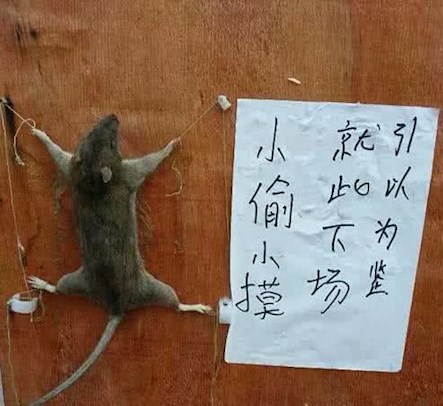 小偷小摸
就此下场
引以为鉴